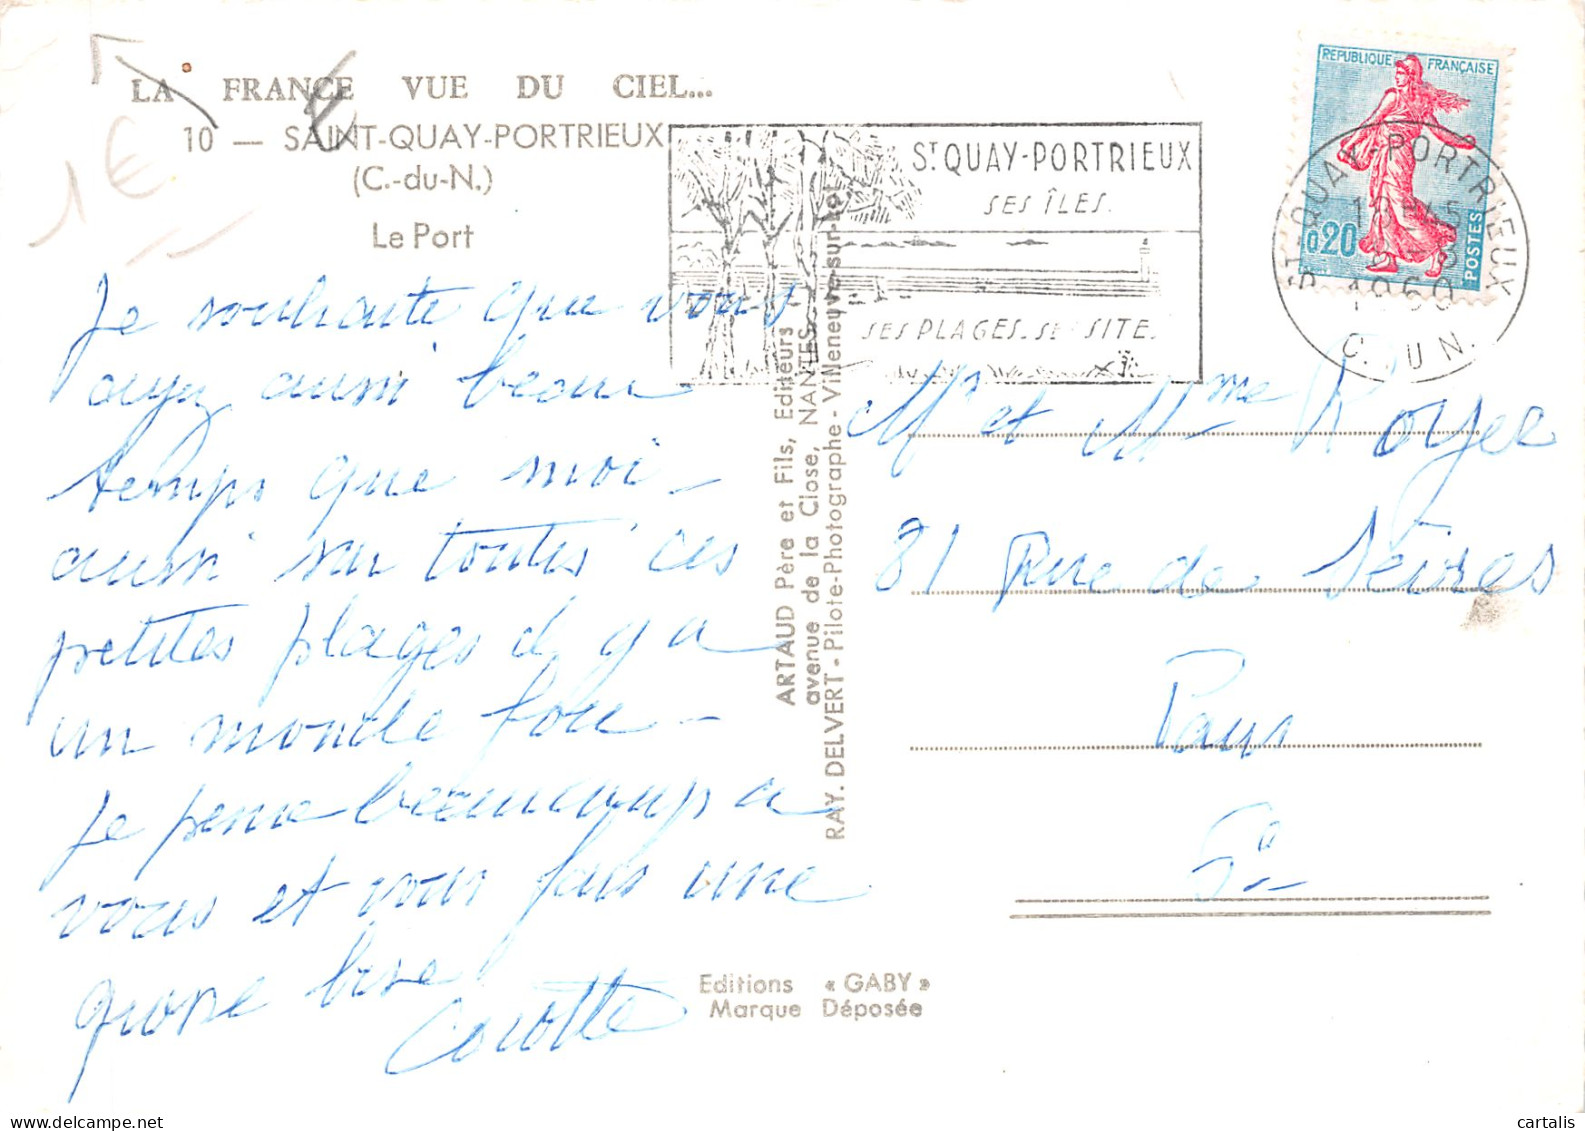 LA FRANCE VUE DU CIEL...
10 — SAINT-QUAY-PORTRIEUX
(C.-du-N.)
Le Port
1€
Je souhaite que vous
ayez aussi beau
temps que moi –
aussi sur toutes ces
petites plages il y a
un monde fou –
Je pense beaucoup a
vous et vous fais une
grosse bise
Carotte
ARTAUD Père et Fils, Editeurs
avenue de la Close, NANTES
RAY. DELVERT - Pilote-Photographe - Villeneuve-sur-Lot
Editions « GABY »
Marque Déposée
ST QUAY-PORTRIEUX
SES ÎLES.
SES PLAGES. SES SITE.
REPUBLIQUE FRANÇAISE
0,20
POSTES
ST-QUAY-PORTRIEUX
1960
C. DU N.
Mr et Mme Royer
81 Rue de Sèvres
Paris
6e
cartalis